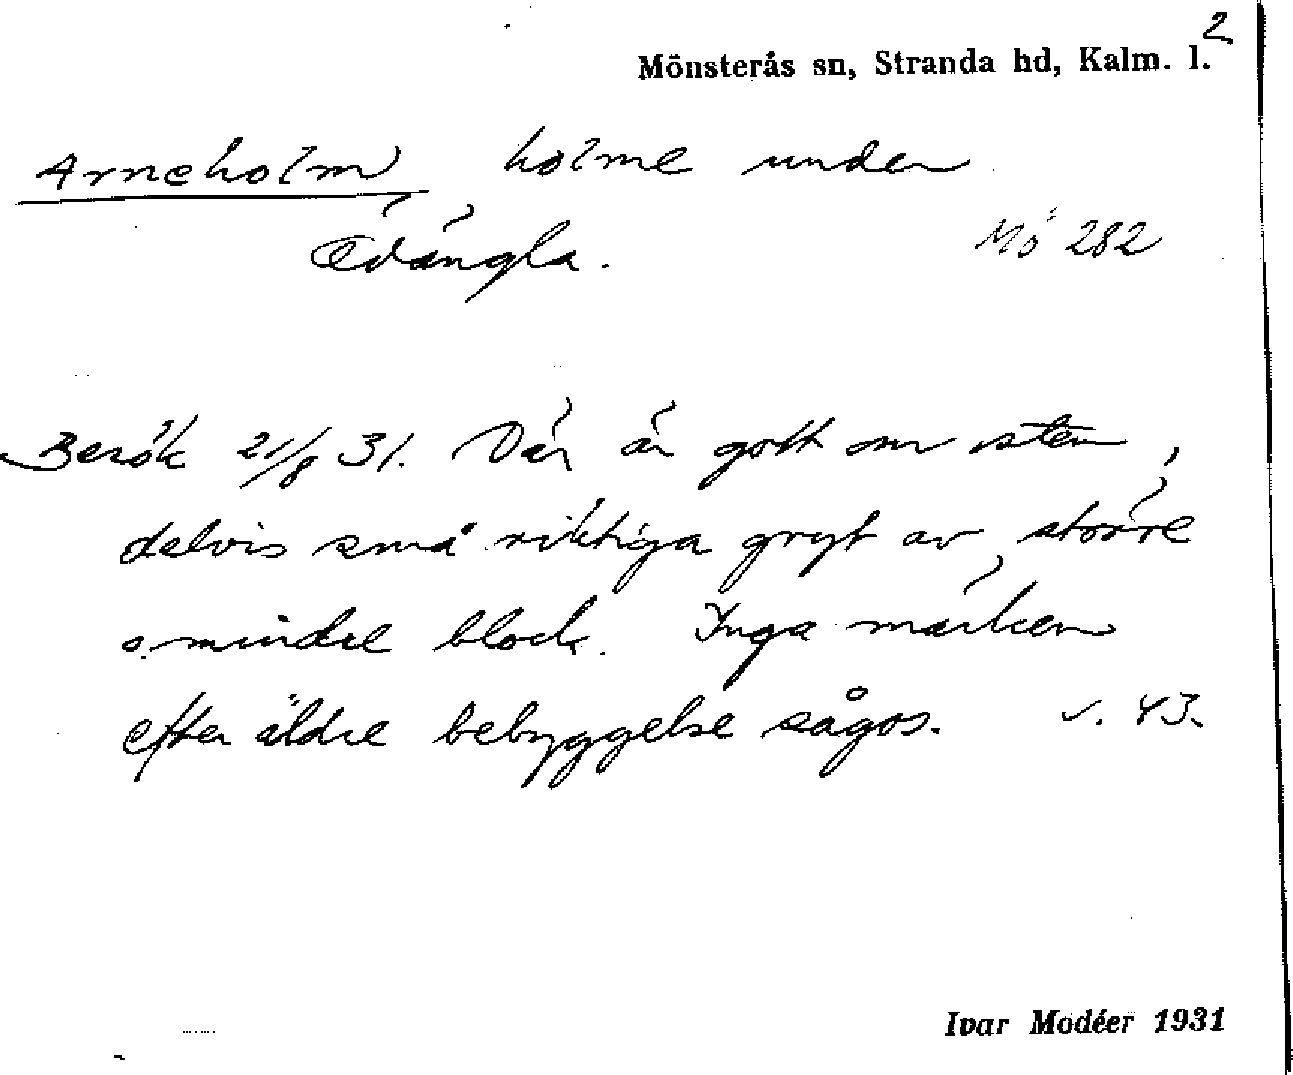 2
Mönsterås sn, Stranda hd, Kalm. l.
Arneholm, holme under
Ödängla.
Mö 282
Besök 21/8 31. Där är gott om sten,
delvis små riktiga gryt av större
o. mindre block. Inga märken
efter äldre bebyggelse sågos. v. 43.
Ivar Modéer 1931